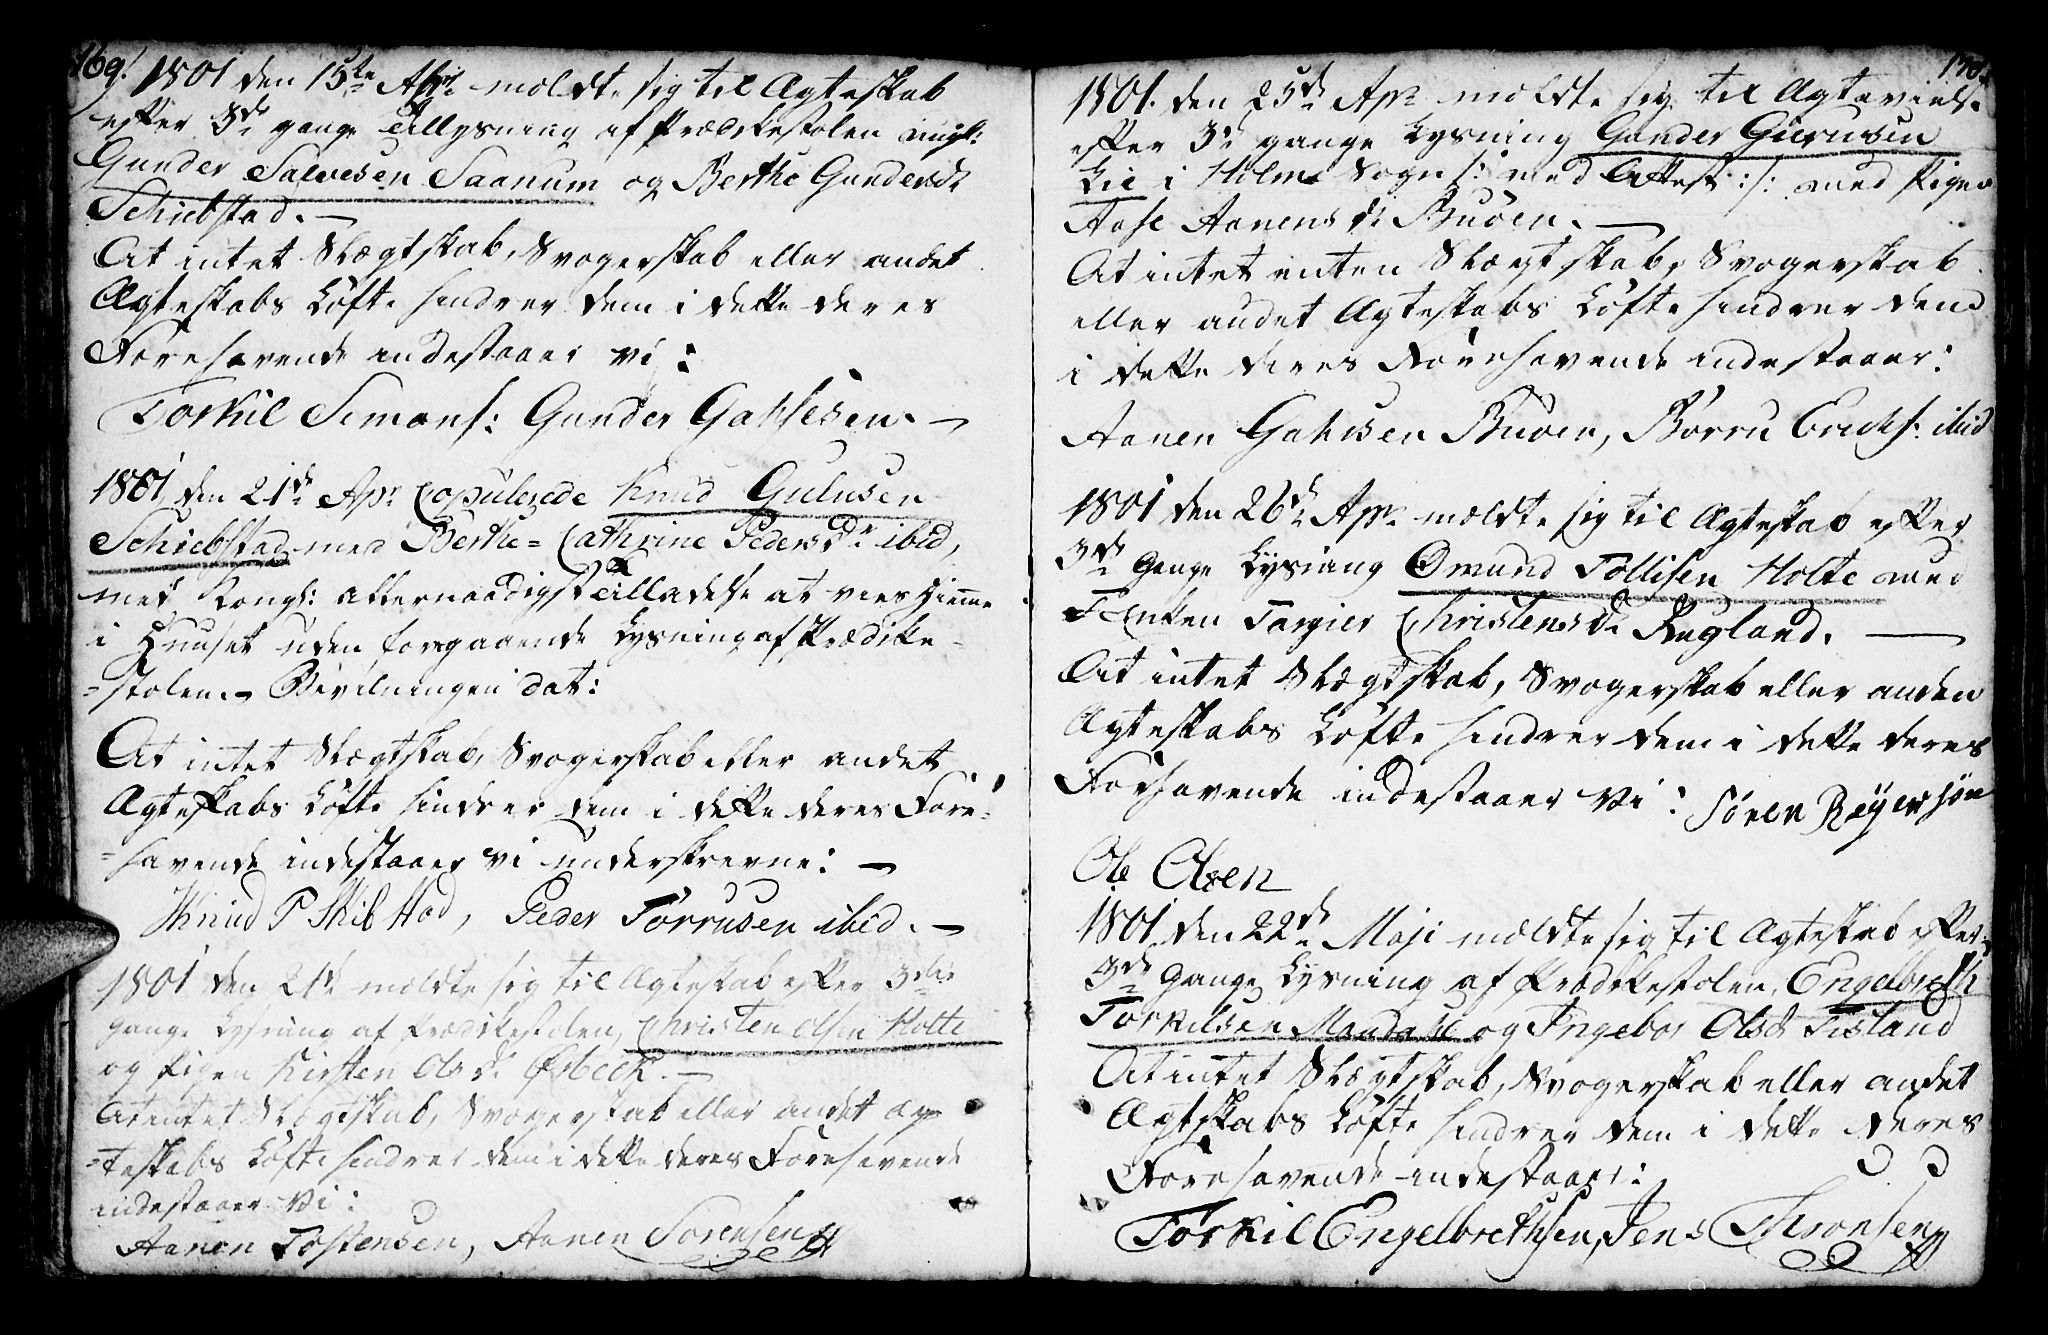 169.
1801 den 15de Apr: meldte sig til Ægteskab
efter 3de gange Tillysning af Prædikestolen ungk:
Gunder Salvesen Saanum og Berthe Gundersdr
Schiebstad. —
At intet Slægtskab, Svogerskab eller andet
Ægteskabs Løfte hindrer dem i dette deres
Forehavende indestaaer vi:
Torkil Simons: Gunder Gabrisen. —
1801 den 21de Apr: Copulerede Knud Gulusen
Schiebstad med Berthe=Cathrine Pedersdr ibid,
med Kongl: allernaadigst Tilladelse at vies hiemme
i Huuset uden foregaaende Lysning af Prædike-
=stolen. — Bevilningen dat:
At intet Slægtskab, Svogerskab eller andet
Ægteskabs Løfte hindrer dem i dette deres Fore-
=havende indestaaer vi underskrevne: —
Knud P Skibstad, Peder Torrusen ibid. —
1801 den 21de meldte sig til Ægteskab efter 3die
gange Lysning af Prædikestolen, Christen Olsen Holte
og Pigen Kirsten Olsdr Øsbeck. —
At intet Slægtskab, Svogerskab eller andet Æg-
=teskabs Løfte hindrer dem i dette deres Forehavende
indestaaer vi:
Aanen Tostensen, Aanen Sørensen
170.
1801. den 25de Apr: meldte sig til Ægtevielse
efter 3de gange Lysning Gunder Gierusen
Lie i Holme Sogn /: med Attest :/ med Pigen
Aase Aanensdr Buøen. —
At intet enten Slægtskab, Svogerskab
eller andet Ægteskabs Løfte hindrer dem
i dette deres Forehavende indestaaer:
Aanen Gahrsen Buøen, Børru Erichs: ibid
1801 den 26de Apr: meldte sig til Ægteskab efter
3de Gange Lysning Omund Tollisen Holte med
Enken Targier Christensdr Rugland. —
At intet Slægtskab, Svogerskab eller anden
Ægteskabs Løfte hindrer dem i dette deres
Forhavende indestaaer vi: Sören Reyersøn
Ole Olsen
1801 den 22de Maji meldte sig til Ægteskab efter
3de Gange Lysning af Prædikestolen, Engelbreth
Torkilsen Mandahl og Ingebor Olsd: Tisland
At intet Slægtskab, Svogerskab eller andet
Ægtskabs Løfte hindrer dem i dette deres
Forehavende indestaaer:
Torkil Engelbrethsen, Jens Thronsen